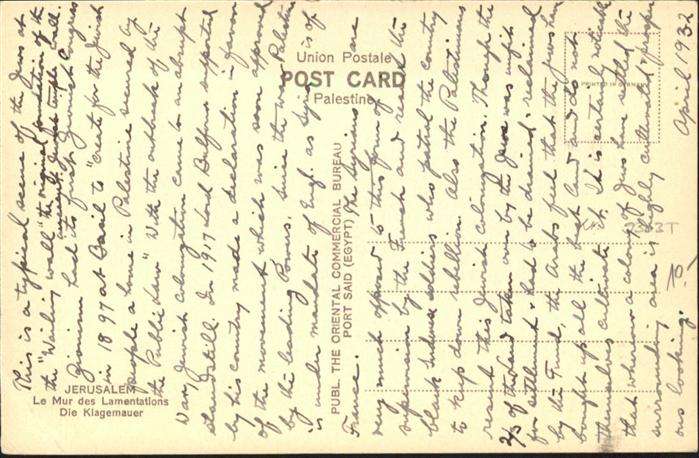 Union Postale
POST CARD
Palestine
JERUSALEM
Le Mur des Lamentations
Die Klagemauer
PUBL. THE ORIENTAL COMMERCIAL BUREAU
PORT SAID (EGYPT)
This is a typical scene of the Jews at
the "Wailing wall" the original foundation of the
ancient temple wall.
Zionism had its first Jewish Congress
in 1897 at Basil to "create for the Jewish
people a home in Palestine secured by
the Public Law." With the outbreak of the
War, Jewish colonization came to an abrupt
standstill. In 1917 Lord Balfour supported
by his country made a declaration in favor
of the movement which was soon approved
by the leading Powers. Since the war Palestine
is under mandate of Engl. as Syria is of
France. The Syrians are
very much opposed to this form of
supervision by the French and resent the
black soldiers who patrol the country
to keep down rebellion. Also the Palestinians
resent this Jewish colonization. Though the
2/3 of the land taken over by the Jews was unfit
for settlement & had to be drained & reclaimed
by the Fund, the Arabs feel that the Jews have
bought up all the best land and do not
themselves cultivate it. It is certainly noticeable
that wherever a colony of Jews have settled the
surrounding area is highly cultivated & prosper-
ous looking.
April 1932
10